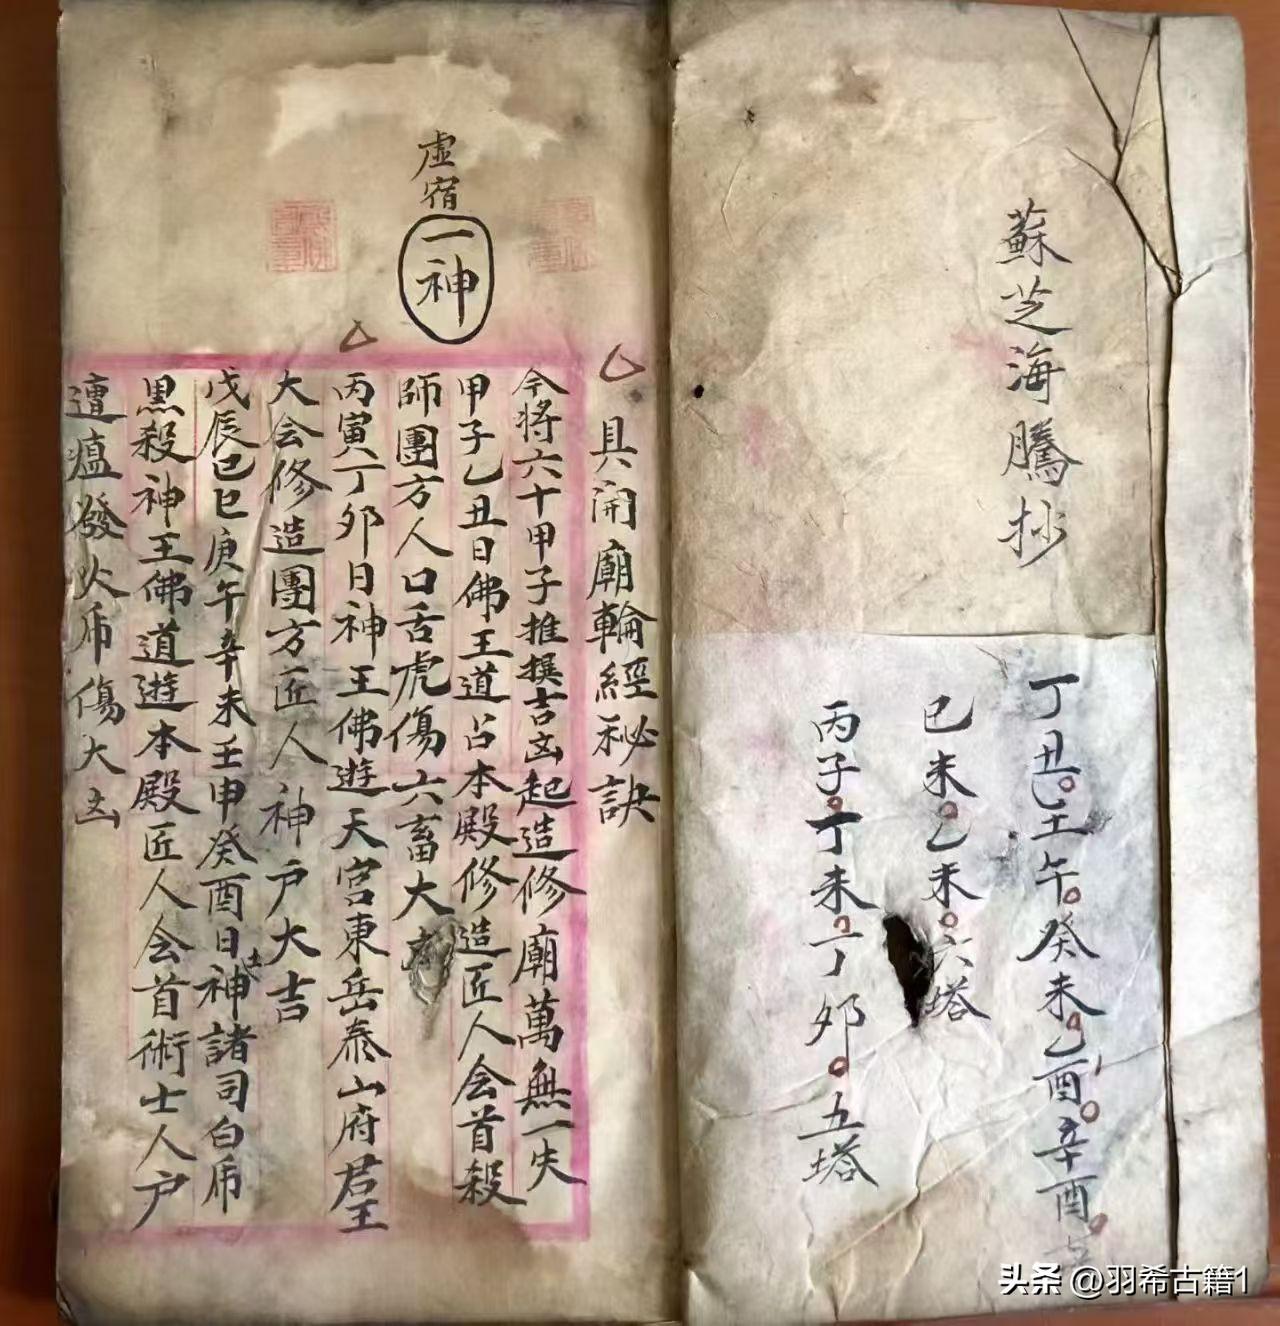 蘇芝海騰抄
丁丑。壬午。癸未。乙酉。辛酉。
已未。乙未。六塔
丙子。丁未。丁卯。五塔
虛宿
一神
具開廟輪經秘訣
今將六十甲子推撰吉凶起造修廟萬無一失
甲子乙丑日佛王道占本殿修造匠人会首殺
師團方人口舌虎傷六畜大
丙寅丁卯日神王佛遊天宮東岳泰山府君王
大会修造團方匠人神户大吉
戊辰已巳庚午辛未壬申癸酉日神諸司白虎
黑殺神王佛道遊本殿匠人会首術士人户
遭瘟發火虎傷大凶
头条 @羽希古籍1